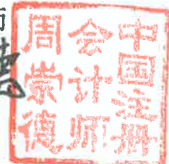 中国注册
会计师
周崇德